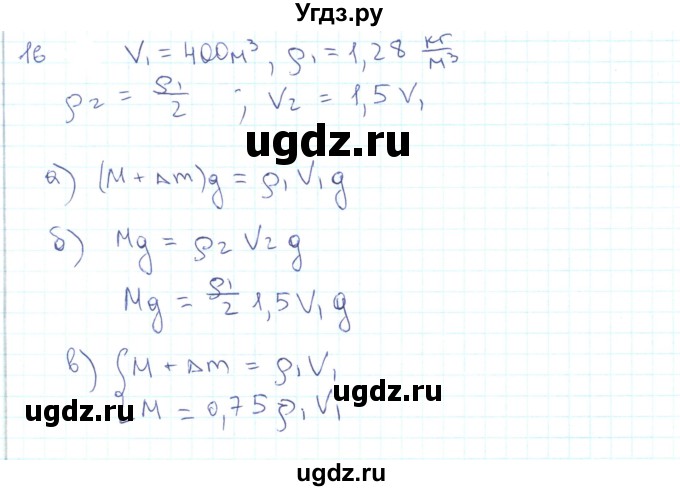 Угдз.ру
1б V₁ = 400м³, ρ₁ = 1,28 кг/м³
ρ₂ = ρ₁/2 ; V₂ = 1,5 V₁
ugdz.ru
а) (M + Δm)g = ρ₁ V₁ g
б) Mg = ρ₂ V₂ g
ugdz.ru
Mg = ρ₁/2 1,5 V₁ g
в) { M + Δm = ρ₁ V₁
M = 0,75 ρ₁ V₁
ugdz.ru
ugdz.ru
ugdz.ru